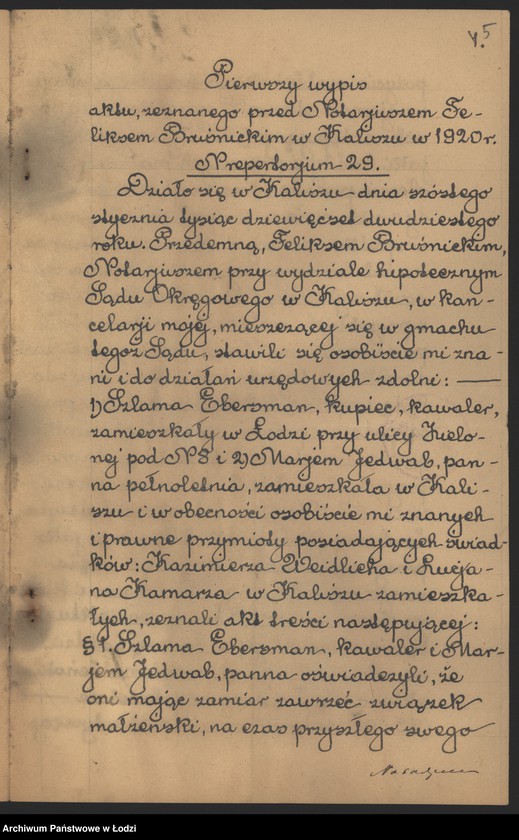 4. 5
Pierwszy wypis
aktu, zeznanego przed Notarjuszem Fe-
liksem Bruśnickim w Kaliszu w 1920 r.
N repertorjum 29.
Działo się w Kaliszu dnia szóstego
stycznia tysiąc dziewięćset dwudziestego
roku. Przedemną, Feliksem Bruśnickim,
Notarjuszem przy wydziale hipotecznym
Sądu Okręgowego w Kaliszu, w kan-
celarji mojej, mieszczącej się w gmachu
tegoż Sądu, stawili się osobiście mi zna-
ni i do działań urzędowych zdolni: —
1) Szlama Ebersman, kupiec, kawaler,
zamieszkały w Łodzi przy ulicy Zielo-
nej pod N 8 i 2) Marjem Jedwab, pan-
na pełnoletnia, zamieszkała w Kali-
szu i w obecności osobiście mi znanych
i prawne przymioty posiadających świad-
ków: Kazimierza Weidlicha i Lucja-
na Kamarza w Kaliszu zamieszka-
łych, zeznali akt treści następującej:
§ 1. Szlama Ebersman, kawaler i Mar-
jem Jedwab, panna oświadczyli, że
oni mając zamiar zawrzeć związek
małżeński, na czas przyszłego swego
Archiwum Państwowe w Łodzi